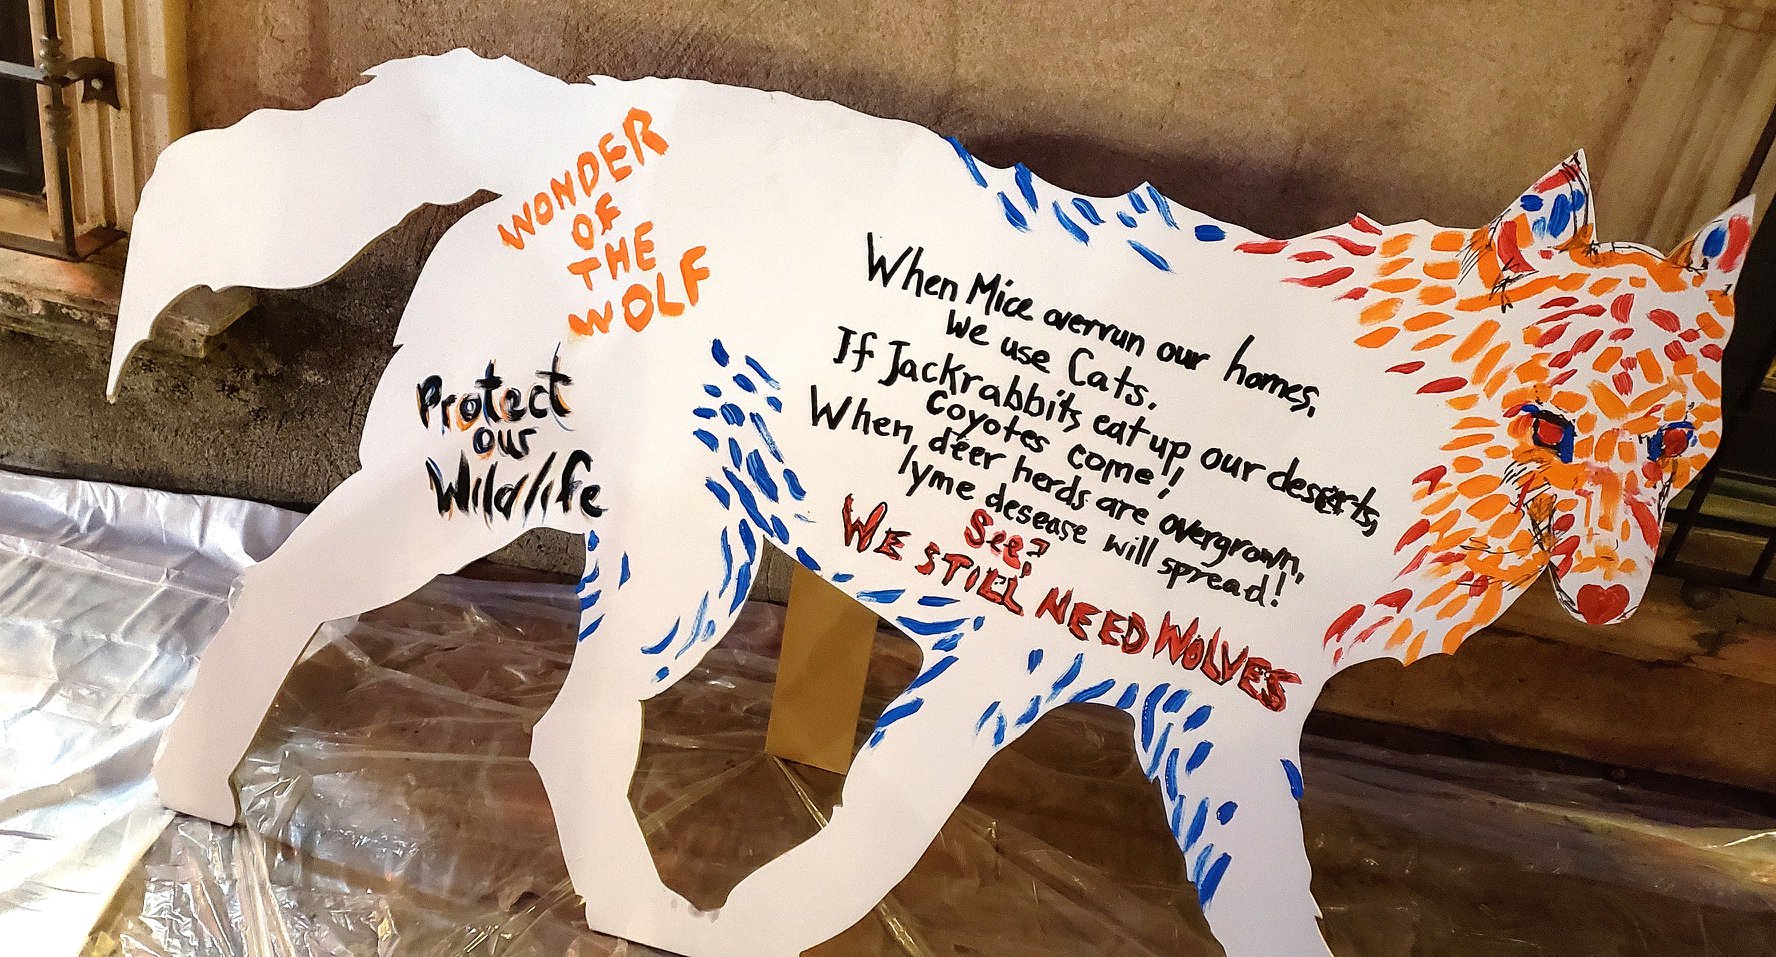 WONDER
OF
THE
WOLF
Protect
our
Wildlife
When Mice overrun our homes,
we use Cats.
If Jackrabbits eat up our deserts,
Coyotes come!
When deer herds are overgrown,
lyme desease will spread!
See?
WE STILL NEED WOLVES